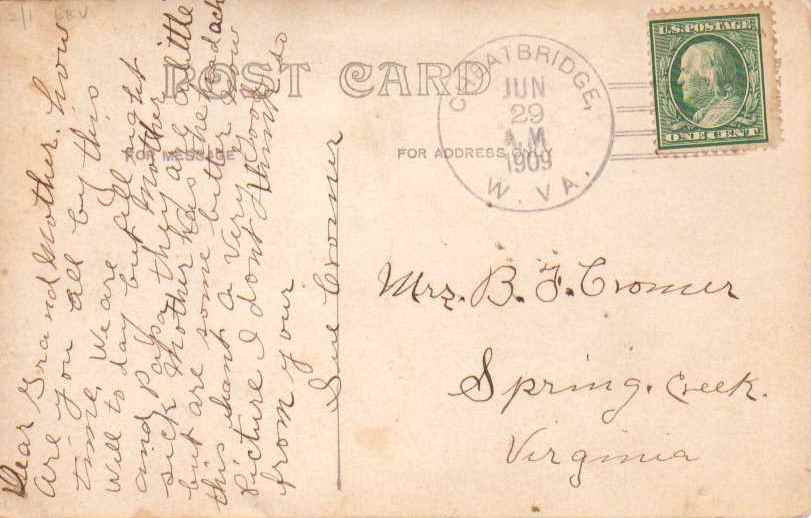 POST CARD
FOR MESSAGE
FOR ADDRESS ONLY
CHEATBRIDGE,
JUN
29
A.M
1909
W. VA.
U.S. POSTAGE
ONE CENT
Dear Grand Mother. how
are you all by this
time. We are all
Will to day but all right
and Papa Mother
sick they are a little
but are Mother has the head ach
this some butter now
Picture I dont think so
from your
Sue Cromer
Mrs. B. F. Cromer
Spring. Creek.
Virginia